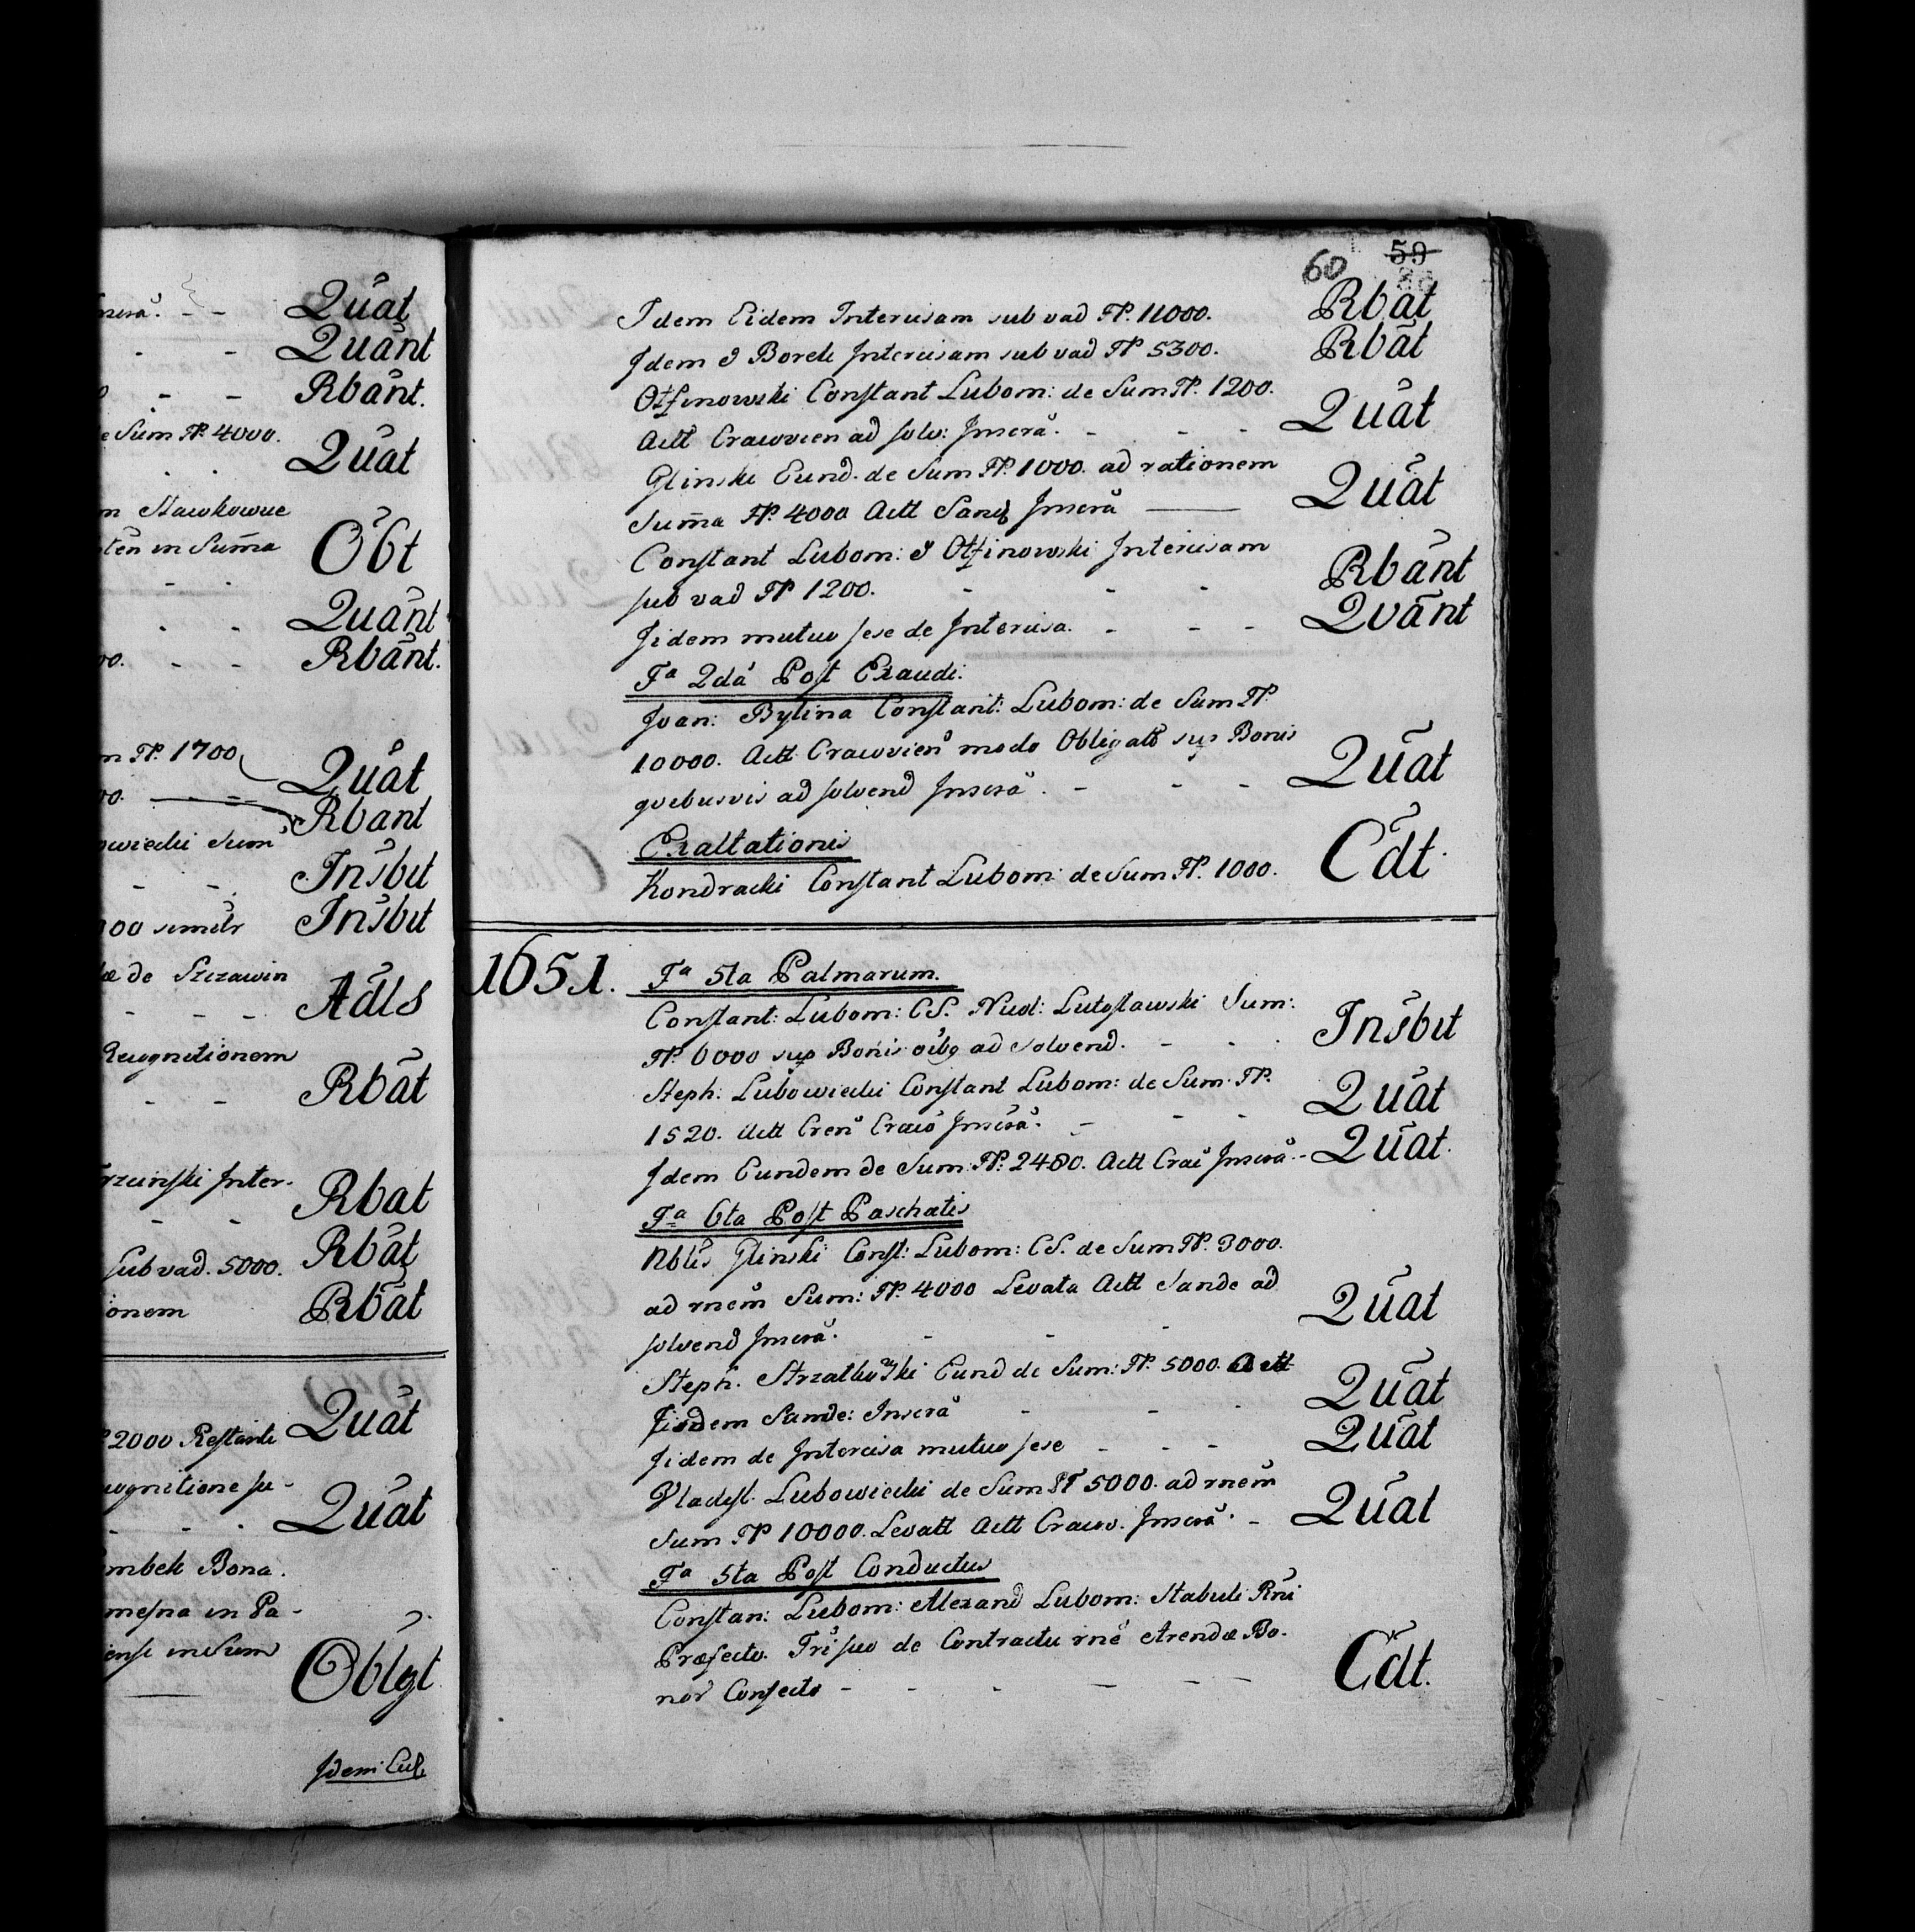 nserā. - - Quāt
- - Quānt
- - Rbānt.
e Sum FP. 4000. Quāt
m Stawkowue
tēn in Sum̄a Obt
- - Quānt
00. - - Rbānt.
m FP. 1700 Quāt
00. - Rbant
owiecki Sum
- - Insbit
000 similr Insbit
de Szczawin
- - - Adls
Recognitionem
- - Rbāt
rzcinski Inter-
- - Rbat
sub vad. 5000. Rbāt
ionem Rbāt
Quāt
2000 Restanti
cognitione su-
- - - Quāt
mbek Bona.
mesna in Pa-
ensi in Sum
Oblgt
Idem Cul.
60 59
Idem Eidem Intercisam sub vad FP. 11000. Rbāt
Idem & Borek Intercisam sub vad FP 5300. Rbāt
Otfinowski Constant Lubom: de Sum FP. 1200.
Actt Cracovien ad solv: Inserā. - - - Quāt
Glinski Eund. de Sum FP. 1000. ad rationem
Sum̄a FP. 4000 Actt Sand Inserā — Quāt
Constant Lubom: & Otfinowski Intercisam
sub vad FP 1200. - - - Rbānt
Iidem mutuo sese de Intercisa. - - - Qvānt
Fa 2dā Post Exaudi.
Joan: Bylina Constant: Lubom: de Sum FP
10000. Actt Cracovien modo Obligatō sup Bonis
qvibusvis ad solvend Inserā. - - - Quāt
Exaltationis
Kondracki Constant Lubom: de Sum FP. 1000. Cdt.
1651. Fa 5ta Palmarum.
Constant: Lubom: CS. Nud: Lutostawski Sum:
FP. 6000 sup Bonis oibq ad solvend. - - . Insbit
Steph: Lubowiecki Constant Lubom: de Sum: FP.
1520. Actt Cren Craco Inserā. - - - Quāt
Idem Eundem de Sum: FP. 2480. Actt Crac Inserā - Quāt.
Fa 6ta Post Paschatis
Nblis Glinski Const: Lubom: CS. de Sum FP. 3000.
ad rnem Sum: FP. 4000 Levata Actt Sande ad
solvend Inserā. - - - Quāt
Steph. Strzatkowski Eund de Sum: FP. 5000. Actt
Iisdem Sande: Inserā - - - Quāt
Iidem de Intercisa mutuo sese - - - Quāt
Vladisl. Lubowiecki de Sum FP 5000. ad rnem
Sum FP 10000. Levatt Actt Cracov. Inserā. - Quāt
Fa 5ta Post Conductus
Constan: Lubom: Alexand Lubom: Stabuli Rni
Præfecto. Fri suo de Contractu rne Arendæ Bo-
nor Confecto - - - - - - Cdt.